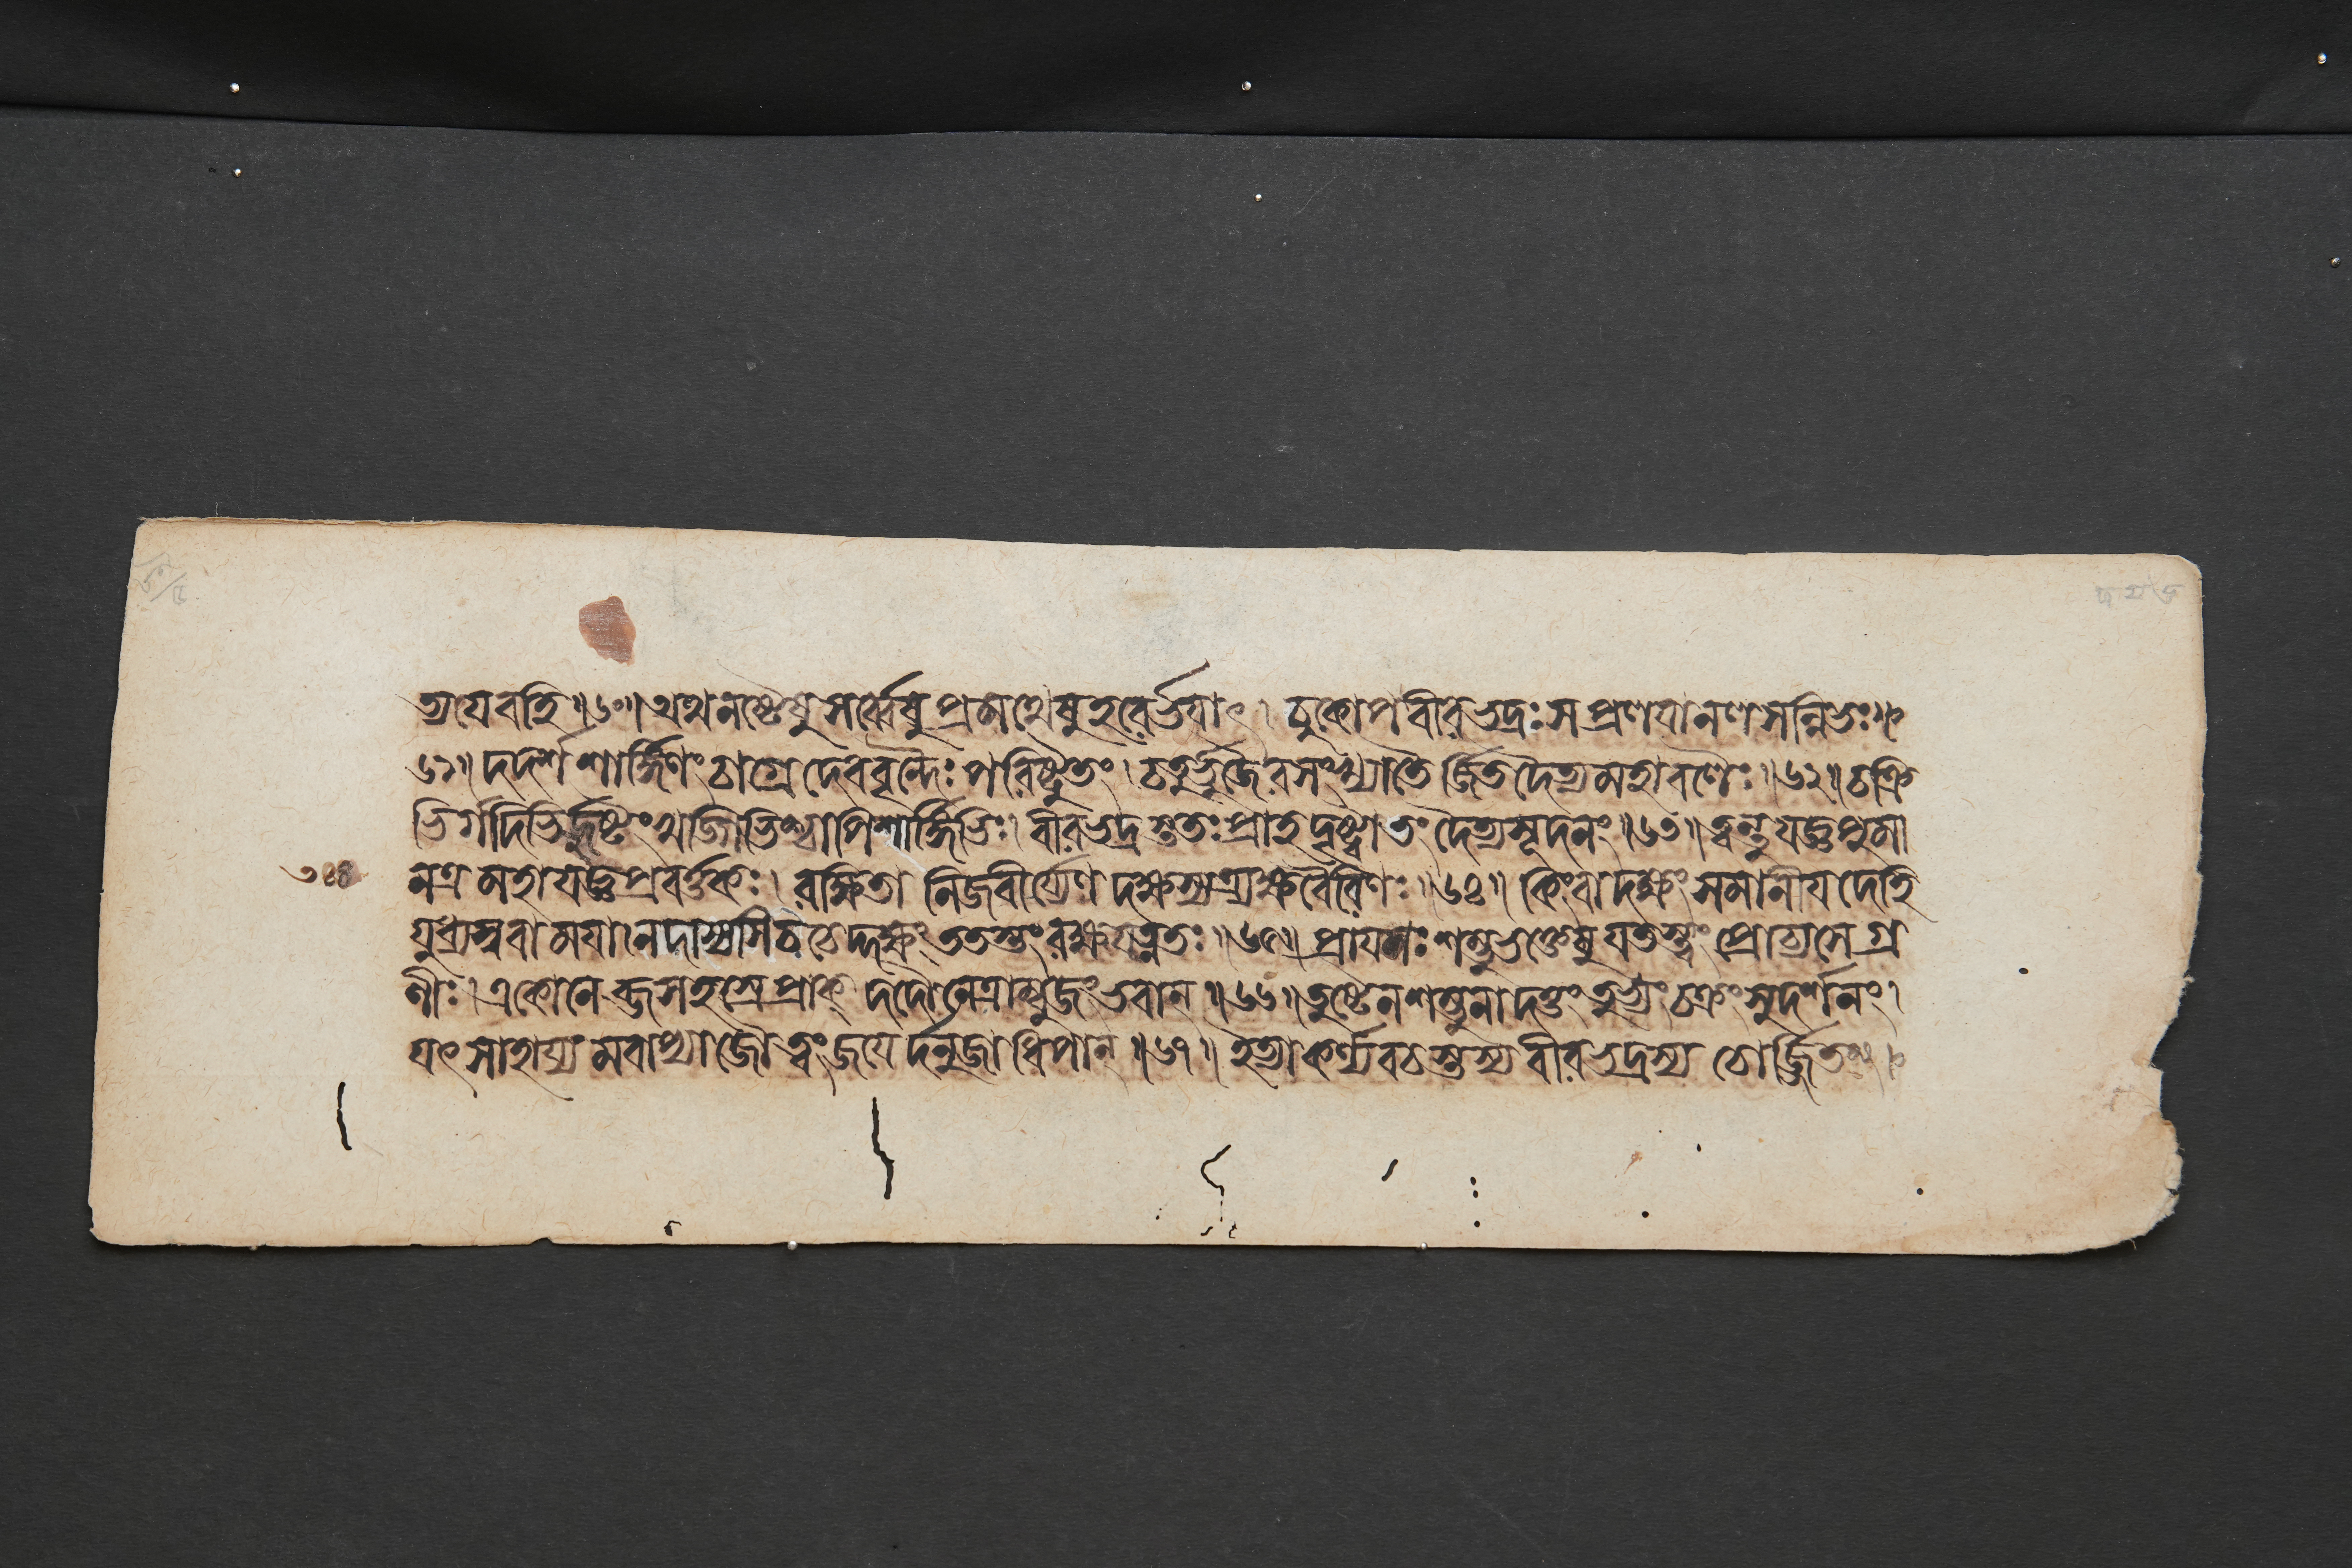 ত্যযেবহি ॥৬০॥ অথনষ্টেষুসর্ব্বেষুপ্রমথেষুহরের্ভযাৎ । চুকোপবীরভদ্রঃসপ্রলযানলসন্নিভঃ॥
৬১॥ দদর্শশার্ঙ্গিণংচাগ্রেদেববৃন্দৈঃপরিষ্টুতং। চতুর্ভুজৈরসংখ্যাতৈর্জিতদৈত্যমহাবলৈঃ॥৬২॥ চক্রি
ভির্গদিভির্জুষ্টংখড্গিভিশ্চাপিশার্ঙ্গিভিঃ। বীরভদ্রস্ততঃপ্রাহদৃষ্ট্বাতংদৈত্যসূদনং॥৬৩॥ ত্বন্তুযজ্ঞপুমা
নত্রমহাযজ্ঞপ্রবর্ত্তকঃ। রক্ষিতানিজবীর্য্যেণদক্ষস্যত্র্যক্ষবৈরিণঃ॥৬৪॥ কিংবাদক্ষংসমানীযদেহি
যুধ্যস্ববামযানদাস্যসিচেদ্দক্ষংততস্তংরক্ষযত্নতঃ॥৬৫॥ প্রাযশঃশম্ভুভক্তেষুযতস্ত্বংপ্রোচ্যসেগ্র
ণীঃ। একোনেব্জসহস্রেপ্রাক্ দদৌনেত্রাম্বুজংভবান্॥৬৬॥ তুষ্টেনশম্ভুনাদত্তংতুভ্যংচক্রংসুদর্শনং।
যৎসাহায্যমবাপ্যাজৌত্বংজযের্দনুজাধিপান্॥৬৭॥ ইত্যাকর্ণ্যবচস্তস্যবীরভদ্রস্যচোর্জ্জিতং।